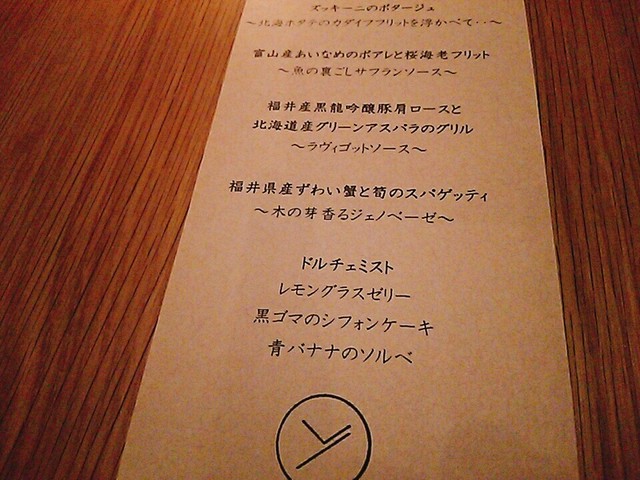 ズッキーニのポタージュ
〜北海ホタテのカダイフフリットを浮かべて・・〜
富山産あいなめのポアレと桜海老フリット
〜魚の裏ごしサフランソース〜
福井産黒龍吟醸豚肩ロースと
北海道産グリーンアスパラのグリル
〜ラヴィゴットソース〜
福井県産ずわい蟹と筍のスパゲッティ
〜木の芽香るジェノベーゼ〜
ドルチェミスト
レモングラスゼリー
黒ゴマのシフォンケーキ
青バナナのソルベ